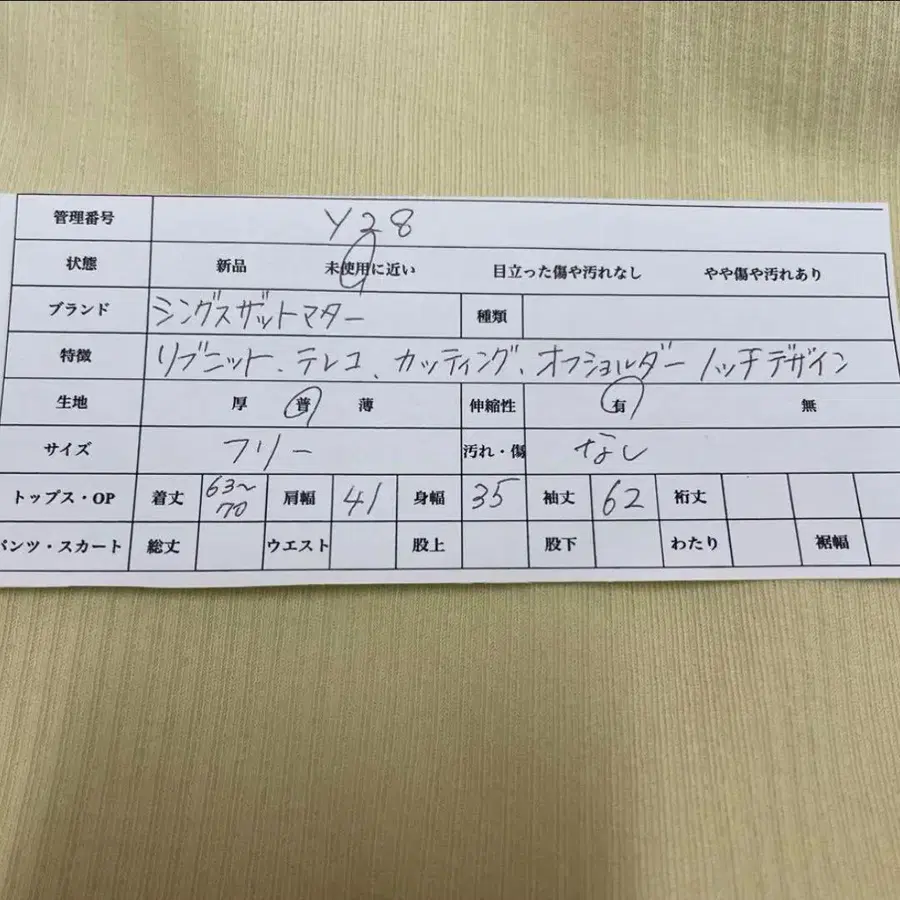 管理番号 Y28
状態 新品 未使用に近い 目立った傷や汚れなし やや傷や汚れあり
ブランド シングスザットマター 種類
特徴 リブニット、テレコ、カッティング、オフショルダー ノッチデザイン
生地 厚 普 薄 伸縮性 有 無
サイズ フリー 汚れ・傷 なし
トップス・OP 着丈 63〜70 肩幅 41 身幅 35 袖丈 62 裄丈
パンツ・スカート 総丈 ウエスト 股上 股下 わたり 裾幅